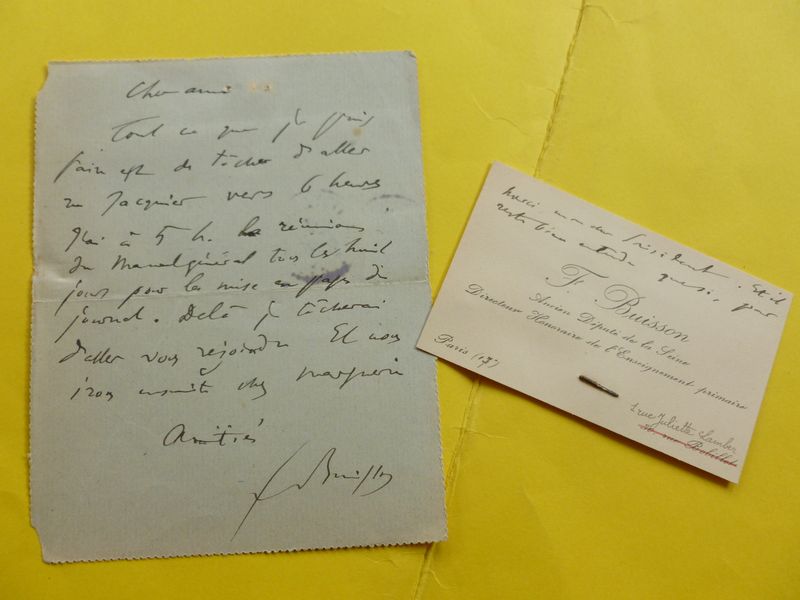 Cher ami
Tout ce que je puis
faire est de tâcher d'aller
au Jacquier vers 6 heures
J'ai à 5 h. la réunion
du Manuel général tous les huit
jours pour la mise en pages du
journal. Delà je tâcherai
d'aller vous rejoindre Et nous
irons ensuite chez
Amitiés
F Buisson
merci mon cher Président. Et il
reste bien entendu que
F. Buisson
Ancien Député de la Seine
Directeur Honoraire de l'Enseignement primaire
Paris (17)
1 rue Juliette Lamber